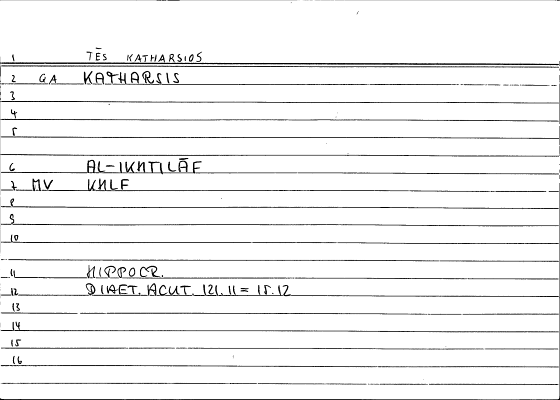 1 TĒS KATHARSIOS
2 GA KATHARSIS
3
4
5
6 AL-IKHTILĀF
7 MV KHLF
8
9
10
11 HIPPOCR.
12 DIAET. ACUT. 121.11 = 15.12
13
14
15
16